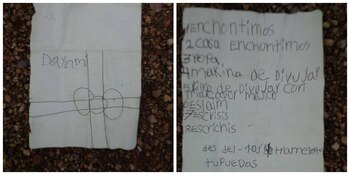 Dayami
1 enchontimos
2 casa enchontimos
3 ropa
4 makina de Divujar
5 fira de Divujar con
marcador magico
6 eslaim
7 escrisis
8 escrichis
des del -10
tu PUEDAS